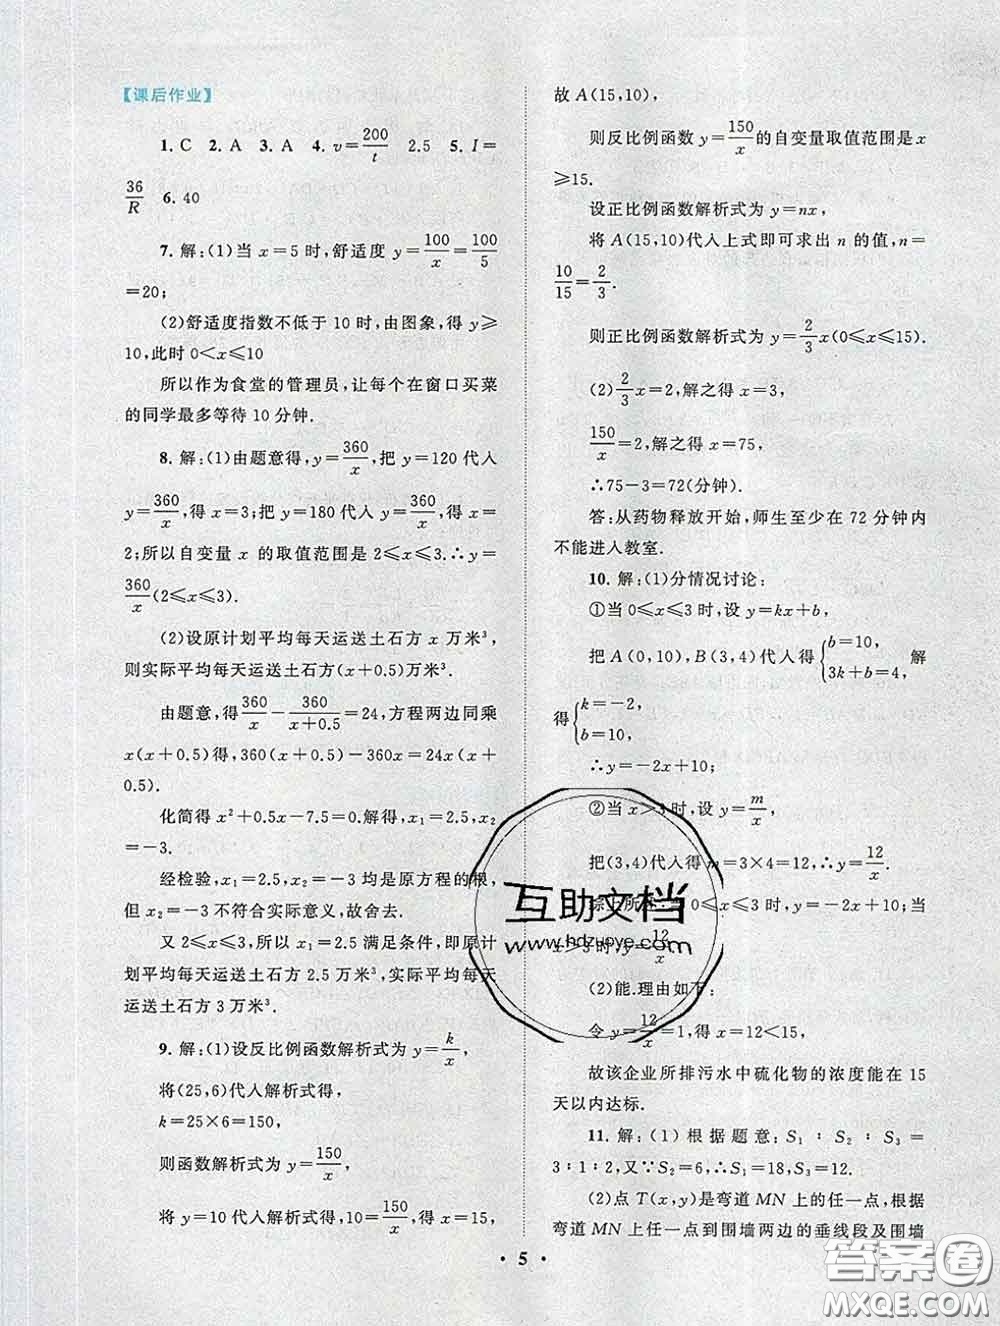 【课后作业】
1. C 2. A 3. A 4. v=200/t 2.5 5. I=
36/R 6. 40
7. 解:(1)当 x=5 时,舒适度 y=100/x=100/5
=20;
(2)舒适度指数不低于 10 时,由图象,得 y≥
10,此时 0<x≤10
所以作为食堂的管理员,让每个在窗口买菜
的同学最多等待 10 分钟.
8. 解:(1)由题意得,y=360/x,把 y=120 代人
y=360/x,得 x=3;把 y=180 代人 y=360/x,得 x=
2;所以自变量 x 的取值范围是 2≤x≤3.∴y=
360/x(2≤x≤3).
(2)设原计划平均每天运送土石方 x 万米³,
则实际平均每天运送土石方(x+0.5)万米³.
由题意,得360/x-360/(x+0.5)=24,方程两边同乘
x(x+0.5)得,360(x+0.5)-360x=24x(x+
0.5).
化简得 x²+0.5x-7.5=0.解得:x₁=2.5,x₂
=-3.
经检验,x₁=2.5,x₂=-3 均是原方程的根,
但 x₂=-3 不符合实际意义,故舍去.
又 2≤x≤3,所以 x₁=2.5 满足条件,即原计
划平均每天运送土石方 2.5 万米³,实际平均每天
运送土石方 3 万米³.
9. 解:(1)设反比例函数解析式为 y=k/x,
将(25,6)代人解析式得,
k=25×6=150,
则函数解析式为 y=150/x,
将 y=10 代人解析式得,10=150/x,得 x=15,
故 A(15,10),
则反比例函数 y=150/x的自变量取值范围是 x
≥15.
设正比例函数解析式为 y=nx,
将 A(15,10)代人上式即可求出 n 的值,n=
10/15=2/3.
则正比例函数解析式为 y=2/3x(0≤x≤15).
(2)2/3x=2,解之得 x=3,
150/x=2,解之得 x=75,
∴75-3=72(分钟).
答:从药物释放开始,师生至少在 72 分钟内
不能进人教室.
10. 解:(1)分情况讨论:
①当 0≤x≤3 时,设 y=kx+b,
把 A(0,10),B(3,4)代人得{b=10, 3k+b=4, 解
得{k=-2, b=10,
∴y=-2x+10;
②当 x>3 时,设 y=m/x,
把(3,4)代人得 m=3×4=12,∴y=12/x.
综上所述:当 0≤x≤3 时,y=-2x+10;当
x>3 时,y=12/x
(2)能.理由如下:
令 y=12/x=1,得 x=12<15,
故该企业所排污水中硫化物的浓度能在 15
天以内达标.
11. 解:(1)根据题意:S₁∶S₂∶S₃=
3∶1∶2,又∵S₂=6,∴S₁=18,S₃=12.
(2)点 T(x,y)是弯道 MN 上的任一点,根据
弯道 MN 上任一点到围墙两边的垂线段及围墙
• 5 •
互助文档
www.hdzuoye.com
答案圈
MXQE.COM